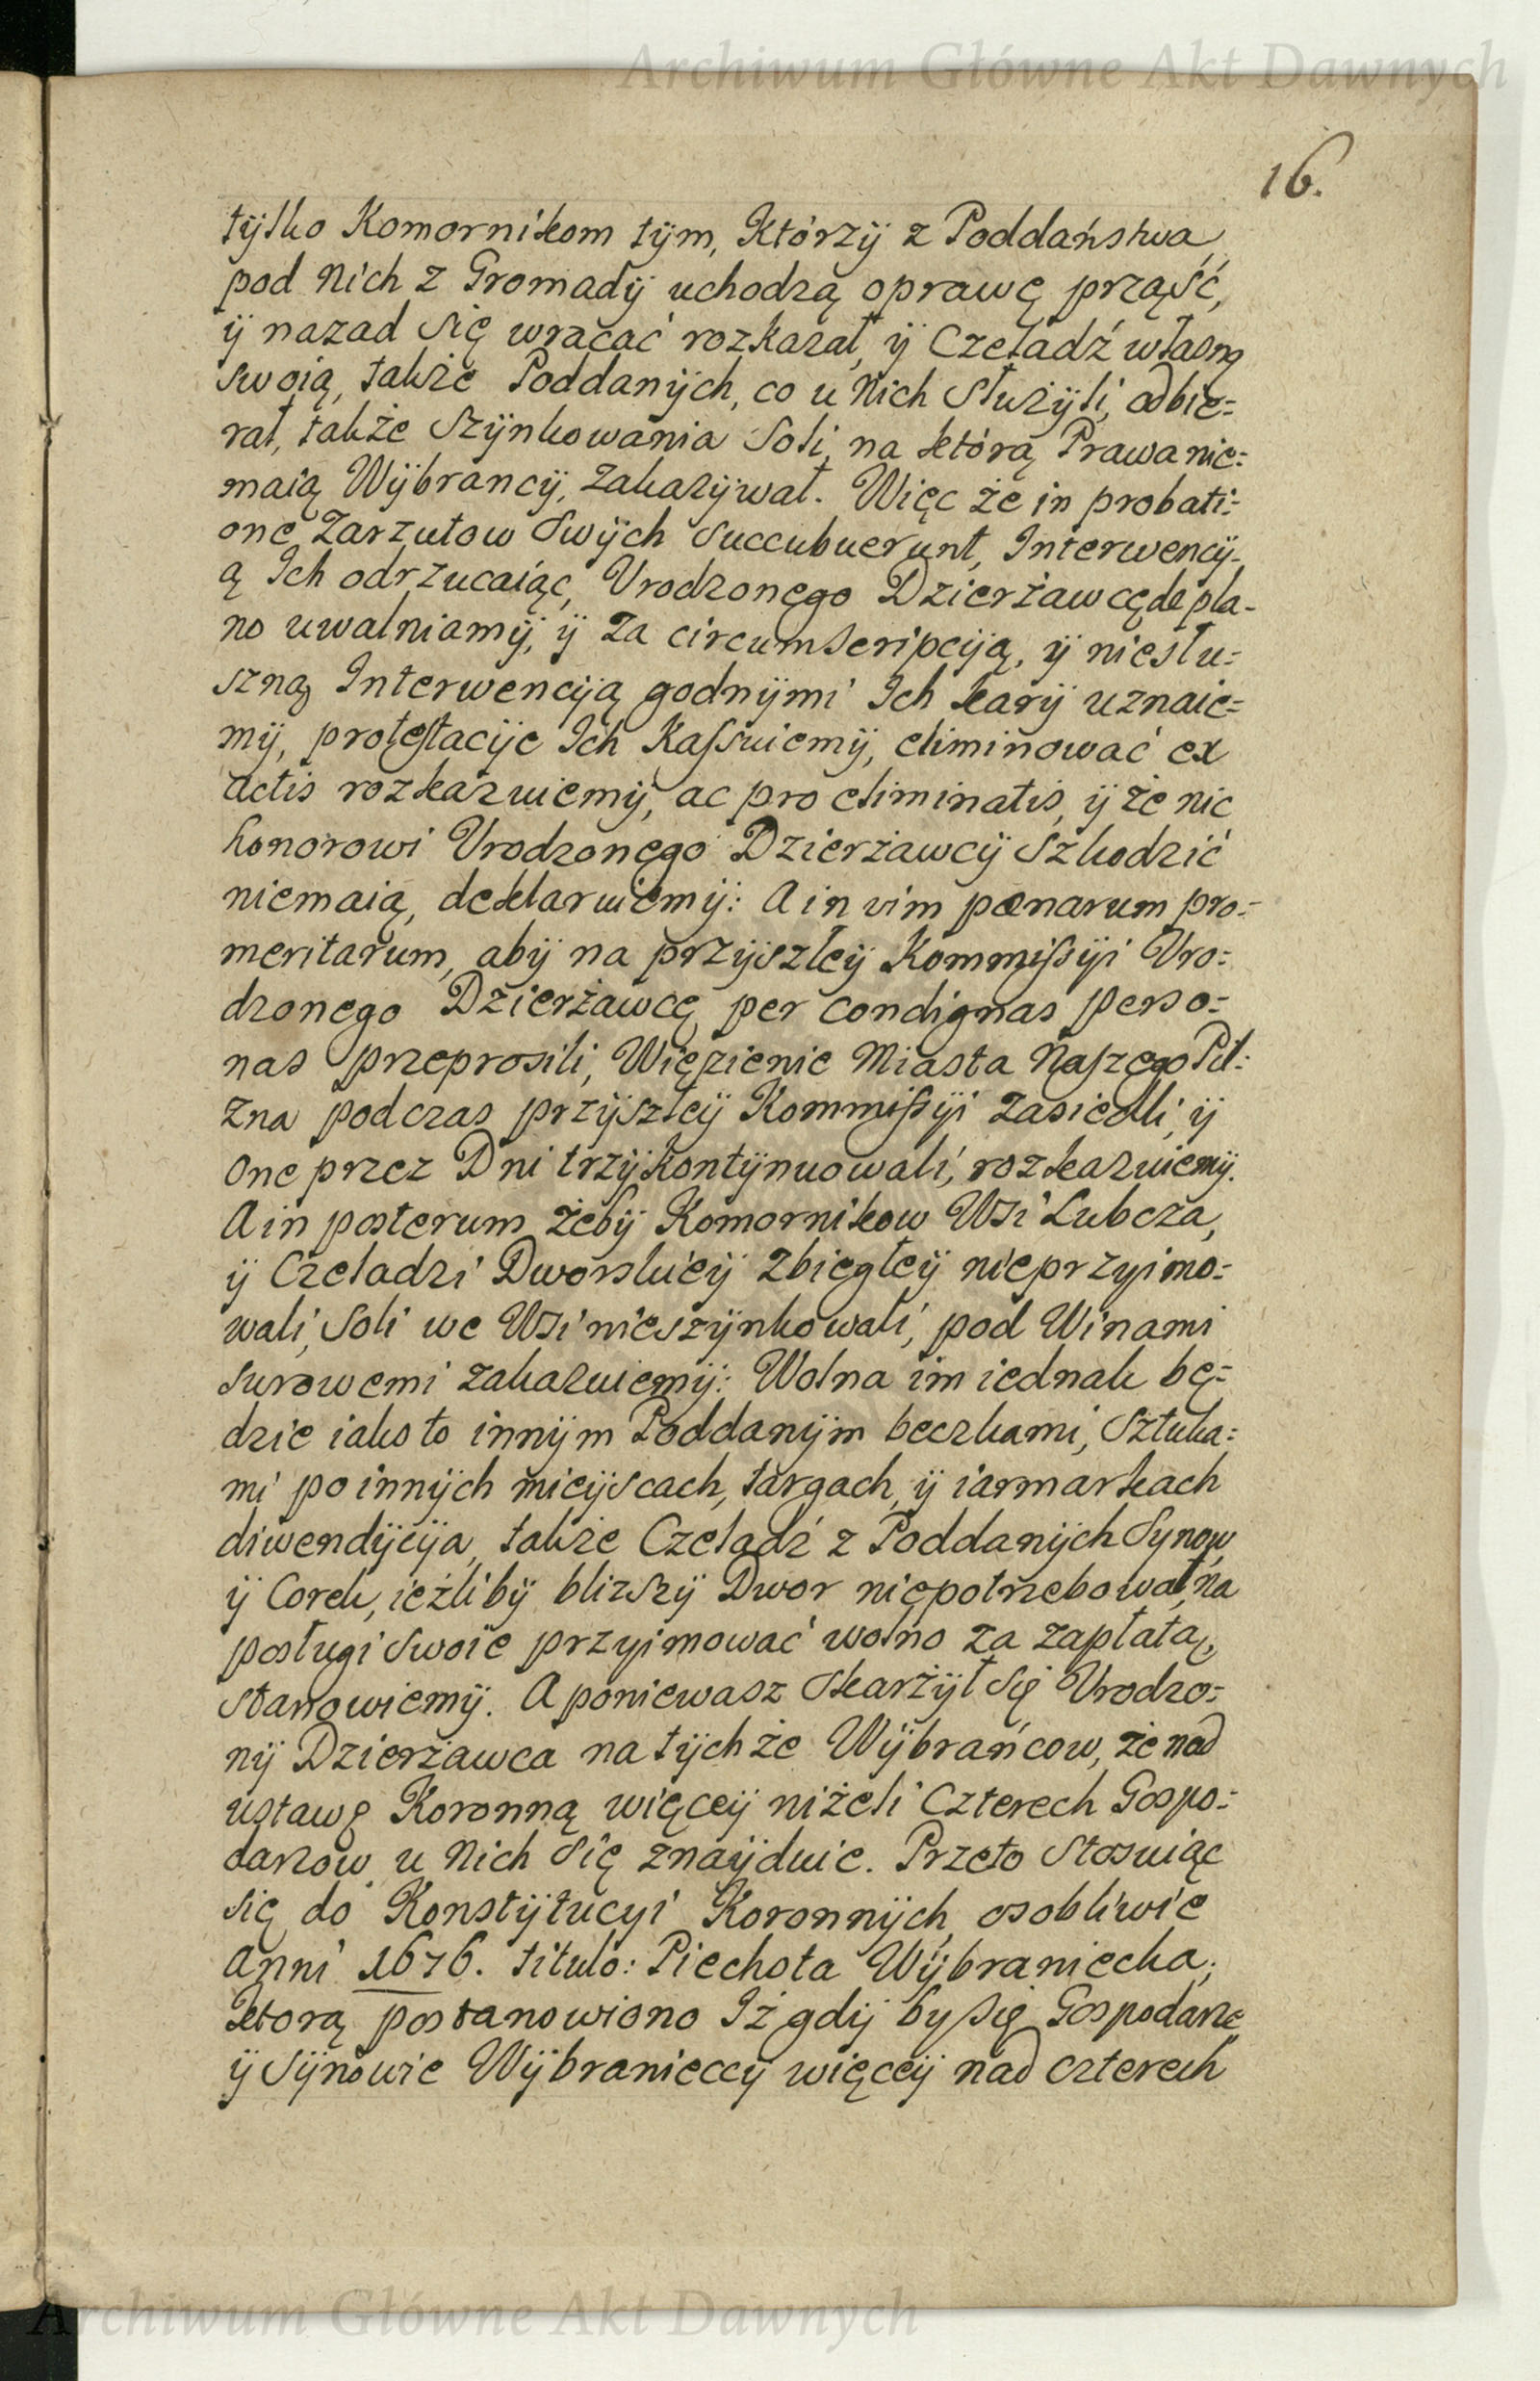 Archiwum Główne Akt Dawnych
16.
tÿlko Komornikom tÿm, Którzÿ z Poddaństwa,
pod Nich z Gromadÿ uchodzą oprawę prząść,
ÿ nazad się wracać rozkazał, ÿ Czeladź własną
swoią, także Poddanÿch, co u Nich służÿli, odbie=
rał, także szÿnkowania Soli, na którą Prawa nie=
maią Wÿbrancÿ, zakazÿwał. Więc że in probati=
one Zarzutow Swÿch Succubuerunt, Interwencÿ-
ą Ich odrzucaiąc, Urodzonego Dzierżawcę de pla-
no uwalniamÿ, ÿ za circumscripcÿą, ÿ niesłu=
szną Interwencÿą godnÿmi Ich karÿ uznaie=
mÿ, protestacÿe Ich Kassuiemÿ, eliminować ex
actis rozkazuiemÿ, ac pro eliminatis, ÿ że nic
honorowi Urodzonego Dzierżawcÿ szkodzić
niemaią, deklaruiemÿ: A in vim pœnarum pro=
meritarum, abÿ na przÿszłeÿ Kommissÿi Uro=
dzonego Dzierżawcę per condignas perso=
nas przeprosili, Więzienie Miasta Naszego Pil=
zna podczas przÿszłeÿ Kommissÿi zasiedli, ÿ
one przez Dni trzÿ kontÿnuowali, rozkazuiemÿ.
A in posterum żebÿ Komornikow Wsi Lubcza,
ÿ Czeladzi Dworskieÿ zbiegłeÿ nieprzyimo=
wali, Soli we Wsi nieszÿnkowali, pod Winami
surowemi zakazuiemÿ: Wolna im iednak bę=
dzie iako to innÿm Poddanÿm beczkami, Sztuka=
mi po innÿch mieÿscach, targach, ÿ iarmarkach
diwendÿcÿa, także Czeladź z Poddanÿch Synow,
ÿ Corek, ieźlibÿ bliższÿ Dwor niepotrzebował, na
posługi swoie przyimować wolno za zapłatą,
stanowiemÿ. A poniewasz skarżÿł się Urodzo=
nÿ Dzierżawca na tÿchże Wÿbrańcow, że nad
ustawę Koronną więceÿ niżeli Czterech Gospo=
darzow u Nich się znaÿduie. Przeto stosuiąc
się do Konstÿtucyi Koronnÿch, osobliwie
Anni 1676. titulo: Piechota Wÿbraniecka,
ktorą postanowiono Iż gdÿ by się Gospodarze
ÿ Sÿnowie Wÿbranieccÿ więceÿ nad czterech
Archiwum Główne Akt Dawnych